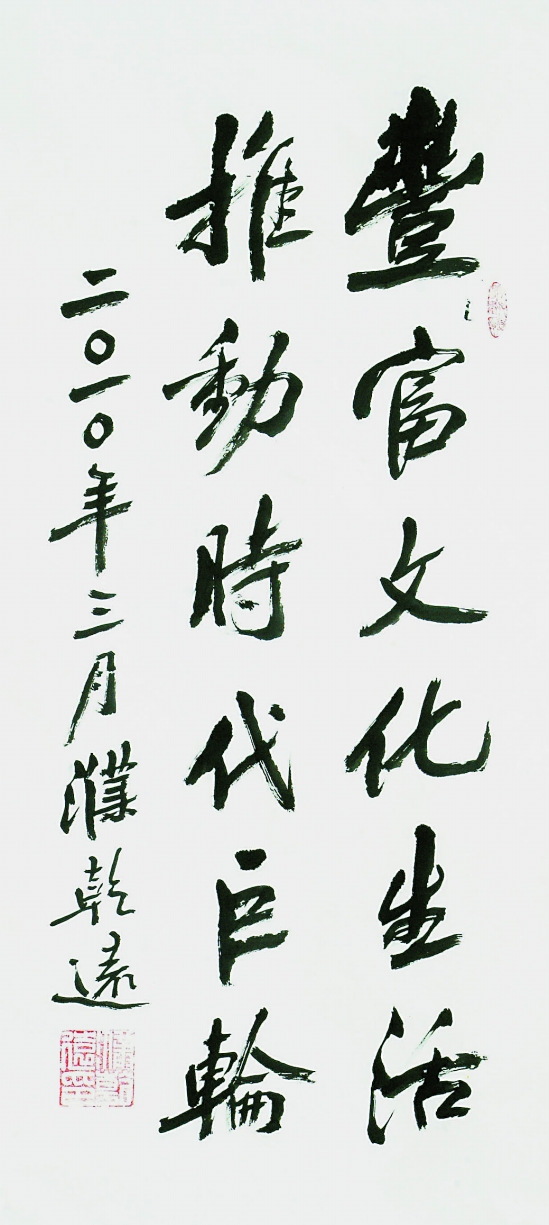 豐富文化生活
推動時代巨輪
二〇一〇年三月濮乾遠